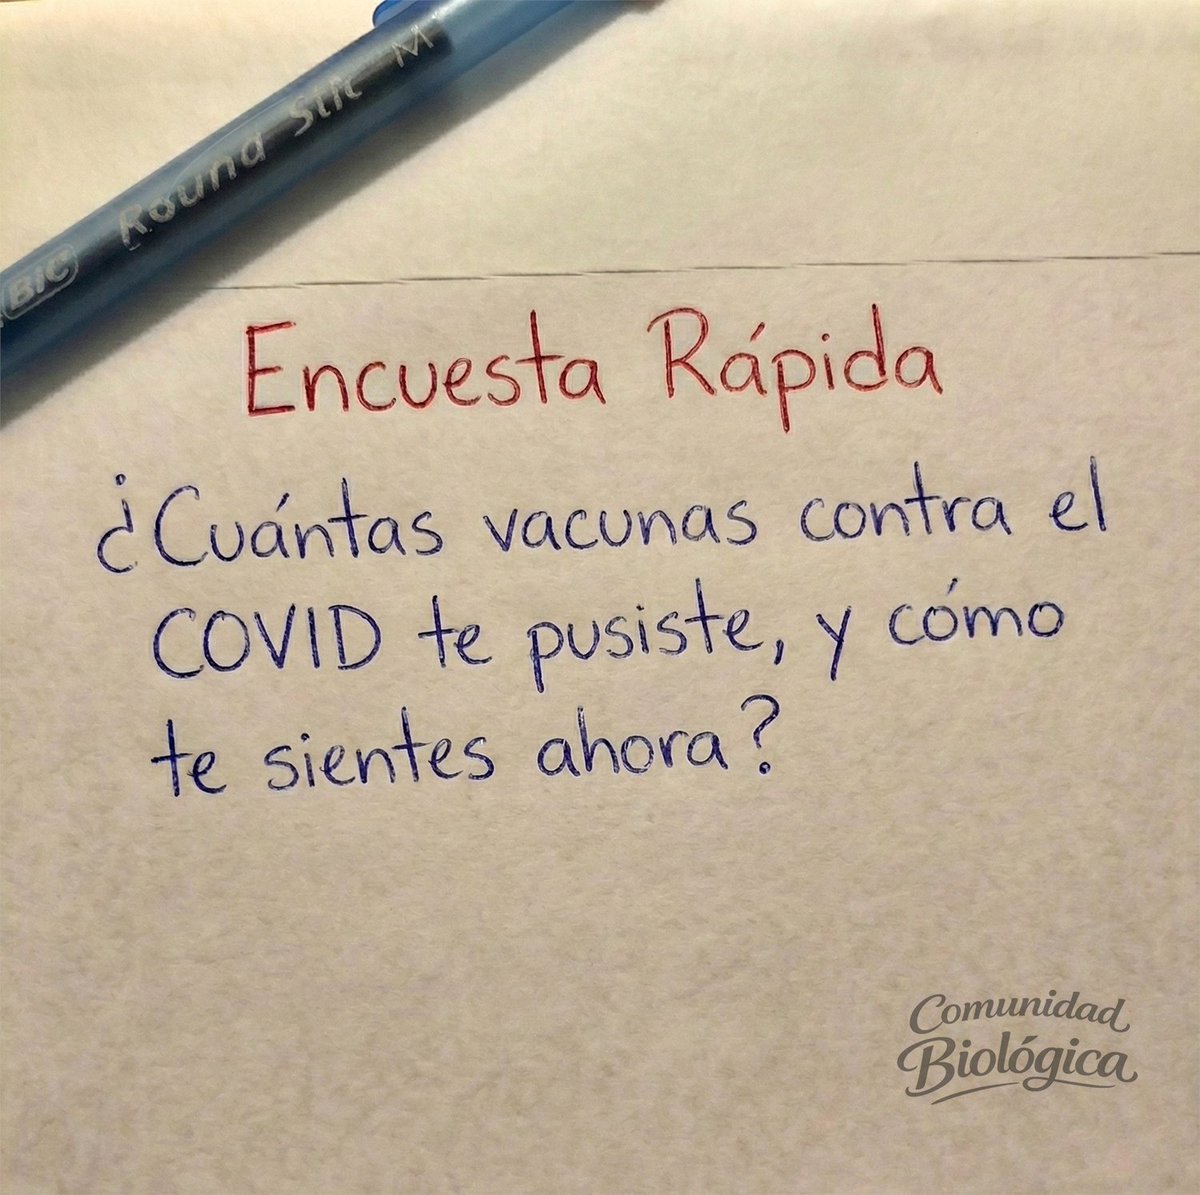 BIC Round Stic M
Encuesta Rápida
¿Cuántas vacunas contra el
COVID te pusiste, y cómo
te sientes ahora?
Comunidad
Biológica